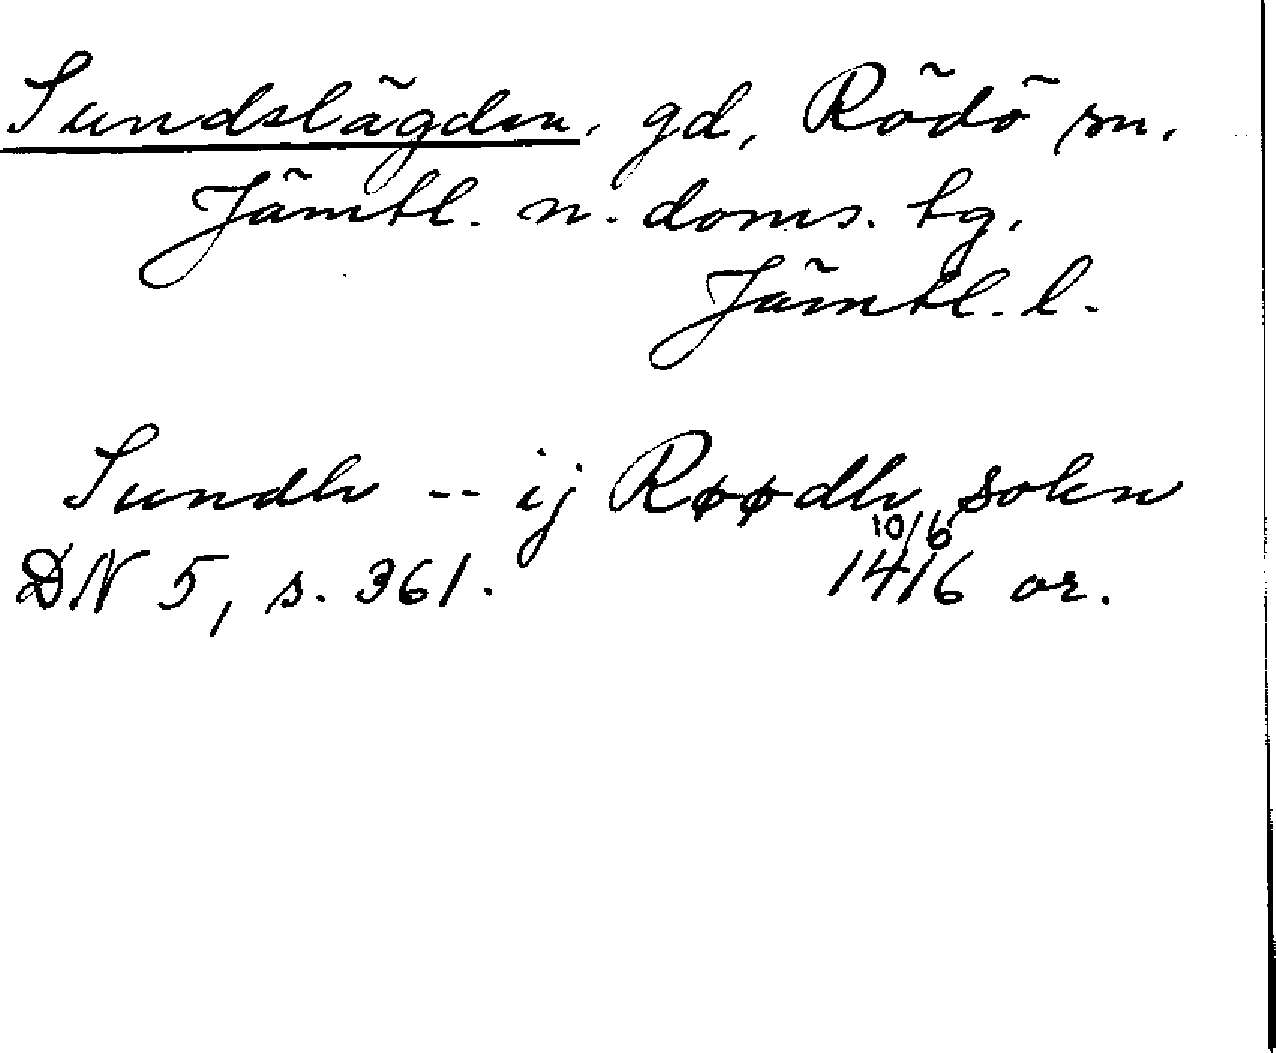 Sundslägden, gd, Rödö sn,
Jämtl. n. doms. tg,
Jämtl. l.
Sundh -- ij Røødh sokn
DN 5, s. 361. 10/6 1416 or.